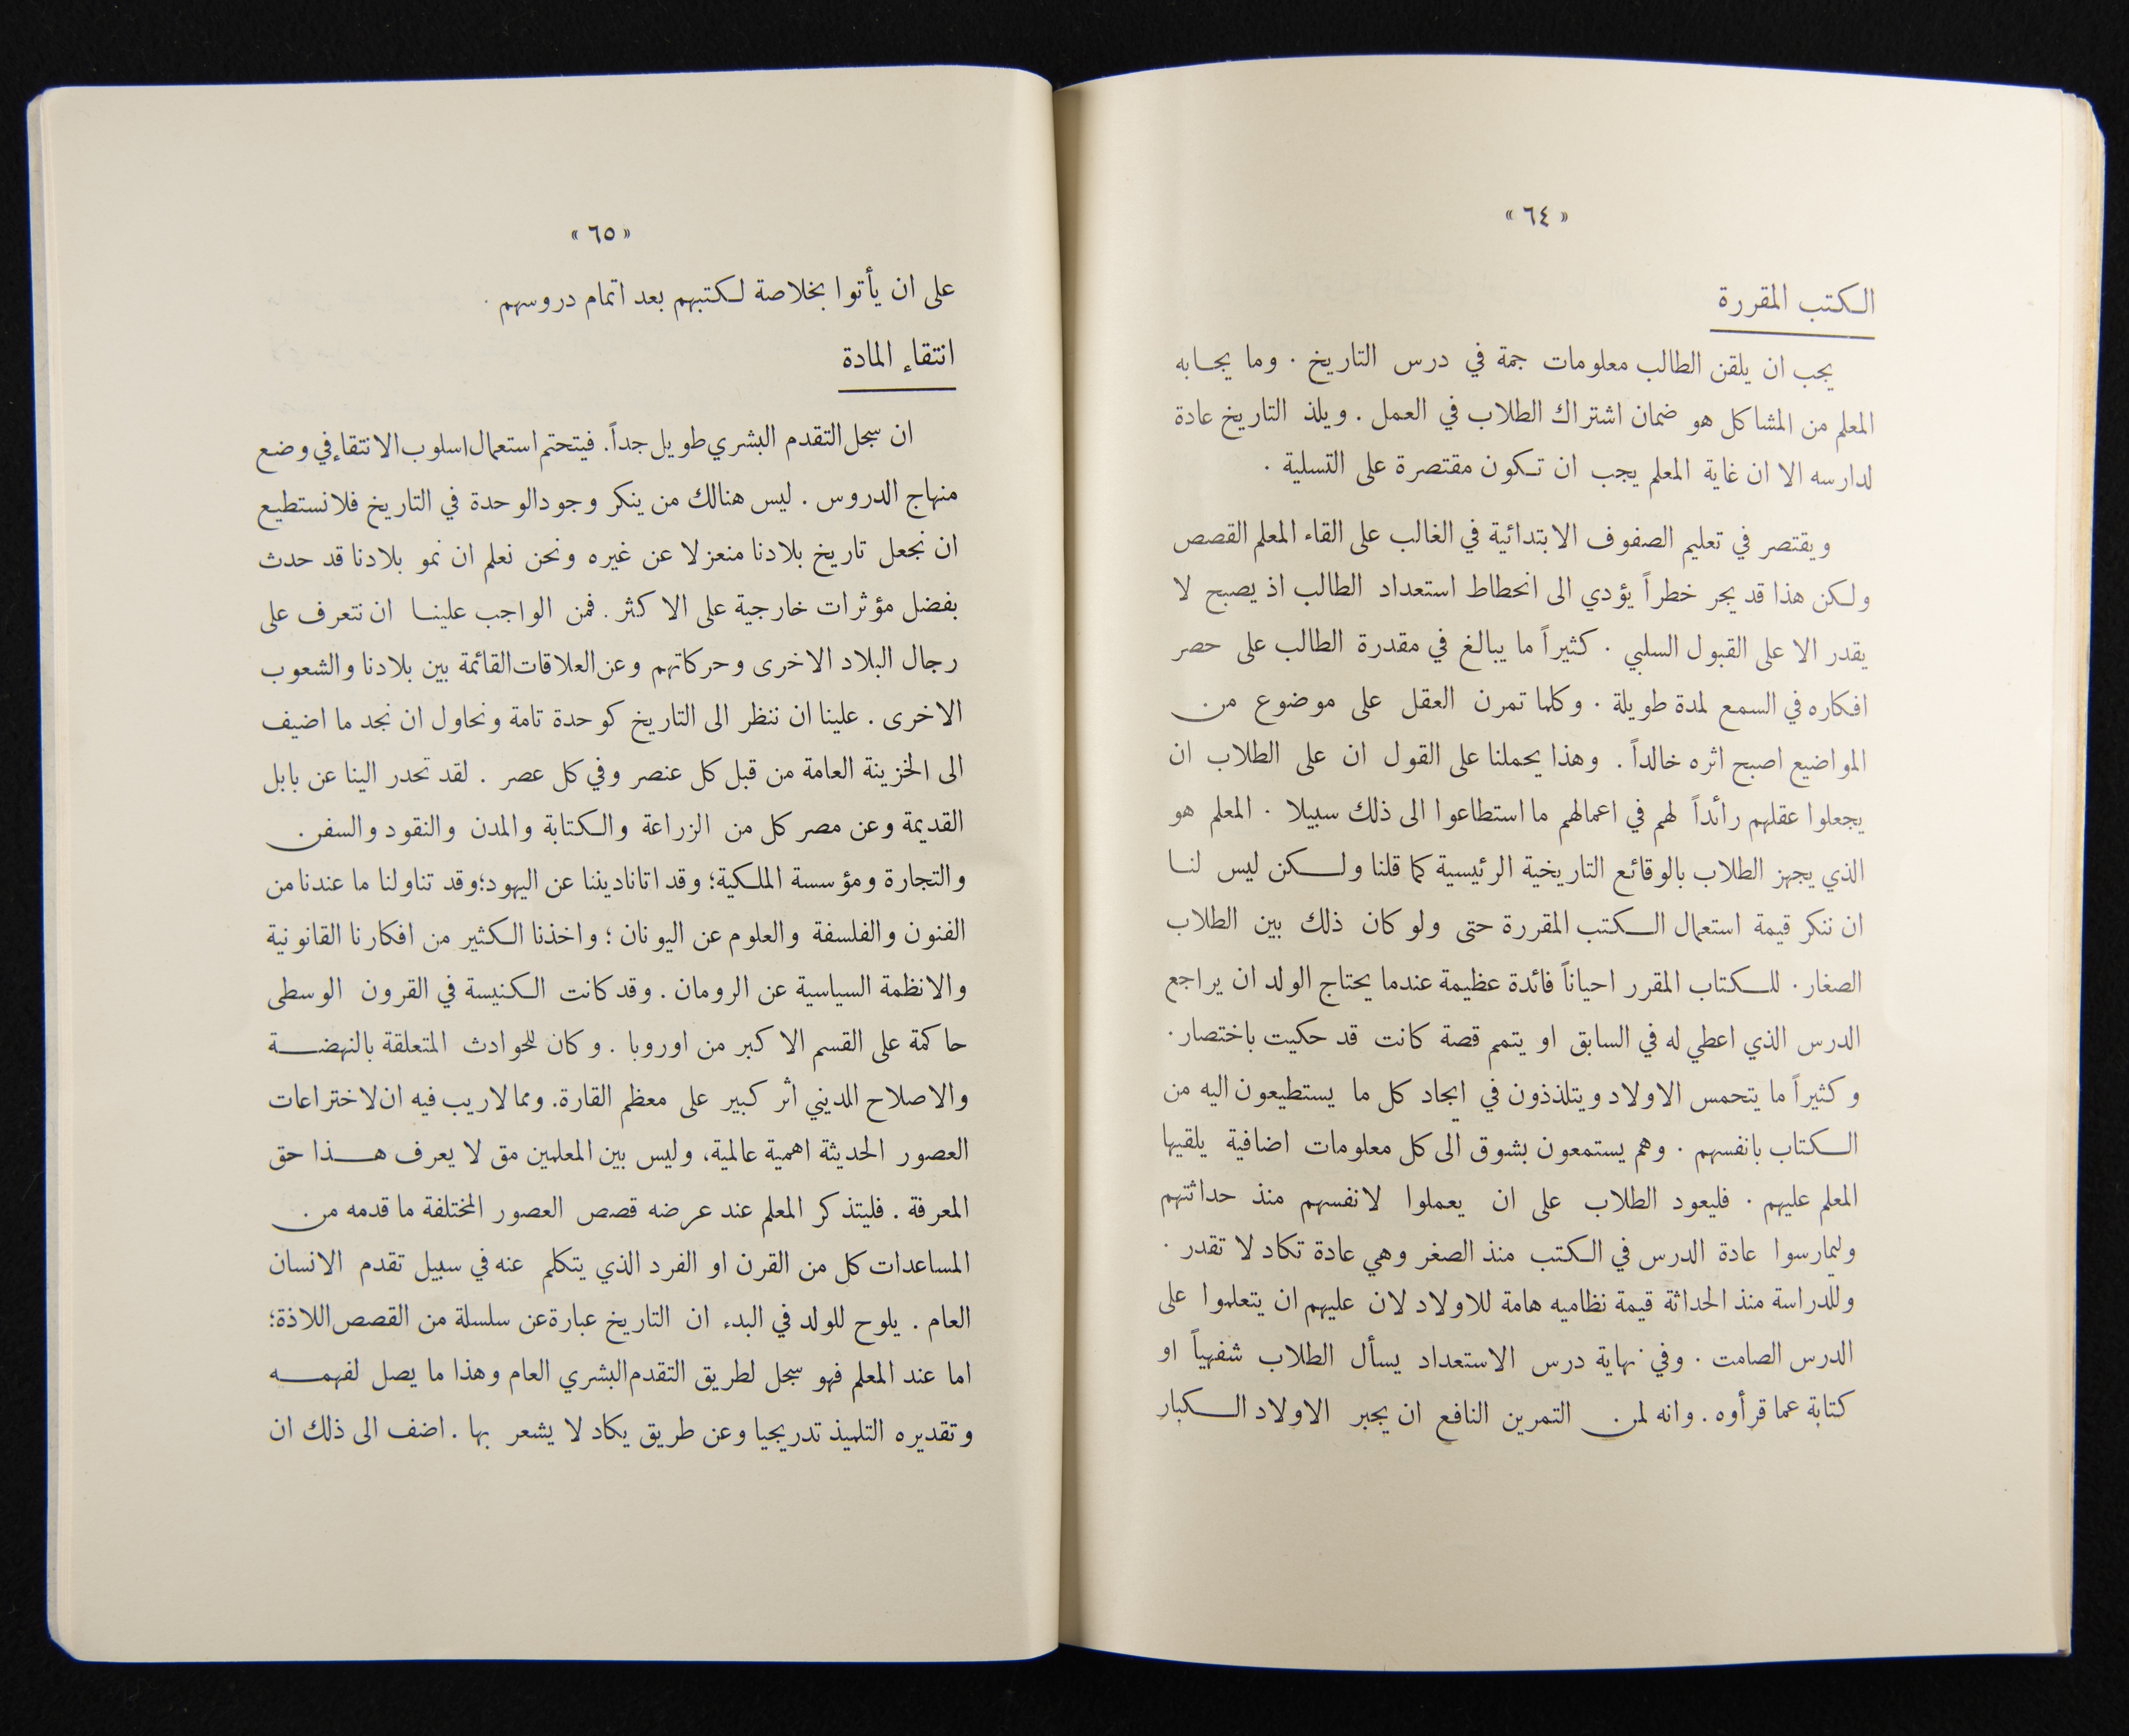 « ٦٤ »
الكتب المقررة
يجب ان يلقن الطالب معلومات جمة في درس التاريخ . وما يجابه
المعلم من المشاكل هو ضمان اشتراك الطلاب في العمل . ويلذ التاريخ عادة
لدارسه الا ان غاية المعلم يجب ان تكون مقتصرة على التسلية .
ويقتصر في تعليم الصفوف الابتدائية في الغالب على القاء المعلم القصص
ولكن هذا قد يجر خطراً يؤدي الى انحطاط استعداد الطالب اذ يصبح لا
يقدر الا على القبول السلبي . كثيراً ما يبالغ في مقدرة الطالب على حصر
افكاره في السمع لمدة طويلة . وكلما تمرن العقل على موضوع من
المواضيع اصبح اثره خالداً . وهذا يحملنا على القول ان على الطلاب ان
يجعلوا عقلهم رائداً لهم في اعمالهم ما استطاعوا الى ذلك سبيلا . المعلم هو
الذي يجهز الطلاب بالوقائع التاريخية الرئيسية كما قلنا ولكن ليس لنا
ان ننكر قيمة استعمال الكتب المقررة حتى ولو كان ذلك بين الطلاب
الصغار . للكتاب المقرر احياناً فائدة عظيمة عندما يحتاج الولد ان يراجع
الدرس الذي اعطي له في السابق او يتمم قصة كانت قد حكيت باختصار .
وكثيراً ما يتحمس الاولاد ويتلذذون في ايجاد كل ما يستطيعون اليه من
الكتاب بانفسهم . وهم يستمعون بشوق الى كل معلومات اضافية يلقيها
المعلم عليهم . فليعود الطلاب على ان يعملوا لانفسهم منذ حداثتهم
وليمارسوا عادة الدرس في الكتب منذ الصغر وهي عادة تكاد لا تقدر .
وللدراسة منذ الحداثة قيمة نظاميه هامة للاولاد لان عليهم ان يتعلموا على
الدرس الصامت . وفي نهاية درس الاستعداد يسأل الطلاب شفهياً او
كتابة عما قرأوه . وانه لمن التمرين النافع ان يجبر الاولاد الكبار
« ٦٥ »
على ان يأتوا بخلاصة لكتبهم بعد اتمام دروسهم .
انتقاء المادة
ان سجل التقدم البشري طويل جداً . فيتحتم استعمال اسلوب الانتقاء في وضع
منهاج الدروس . ليس هنالك من ينكر وجود الوحدة في التاريخ فلا نستطيع
ان نجعل تاريخ بلادنا منعزلا عن غيره ونحن نعلم ان نمو بلادنا قد حدث
بفضل مؤثرات خارجية على الاكثر . فمن الواجب علينا ان نتعرف على
رجال البلاد الاخرى وحركاتهم وعن العلاقات القائمة بين بلادنا والشعوب
الاخرى . علينا ان ننظر الى التاريخ كوحدة تامة ونحاول ان نجد ما اضيف
الى الخزينة العامة من قبل كل عنصر وفي كل عصر . لقد تحدر الينا عن بابل
القديمة وعن مصر كل من الزراعة والكتابة والمدن والنقود والسفن
والتجارة ومؤسسة الملكية؛ وقد اتانا ديننا عن اليهود؛ وقد تناولنا ما عندنا من
الفنون والفلسفة والعلوم عن اليونان ؛ واخذنا الكثير من افكارنا القانونية
والانظمة السياسية عن الرومان . وقد كانت الكنيسة في القرون الوسطى
حاكمة على القسم الاكبر من اوروبا . وكان للحوادث المتعلقة بالنهضة
والاصلاح الديني اثر كبير على معظم القارة. ومما لاريب فيه ان لاختراعات
العصور الحديثة اهمية عالمية، وليس بين المعلمين مق لا يعرف هذا حق
المعرفة . فليتذكر المعلم عند عرضه قصص العصور المختلفة ما قدمه من
المساعدات كل من القرن او الفرد الذي يتكلم عنه في سبيل تقدم الانسان
العام . يلوح للولد في البدء ان التاريخ عبارة عن سلسلة من القصص اللاذة؛
اما عند المعلم فهو سجل لطريق التقدم البشري العام وهذا ما يصل لفهمه
وتقديره التلميذ تدريجيا وعن طريق يكاد لا يشعر بها . اضف الى ذلك ان